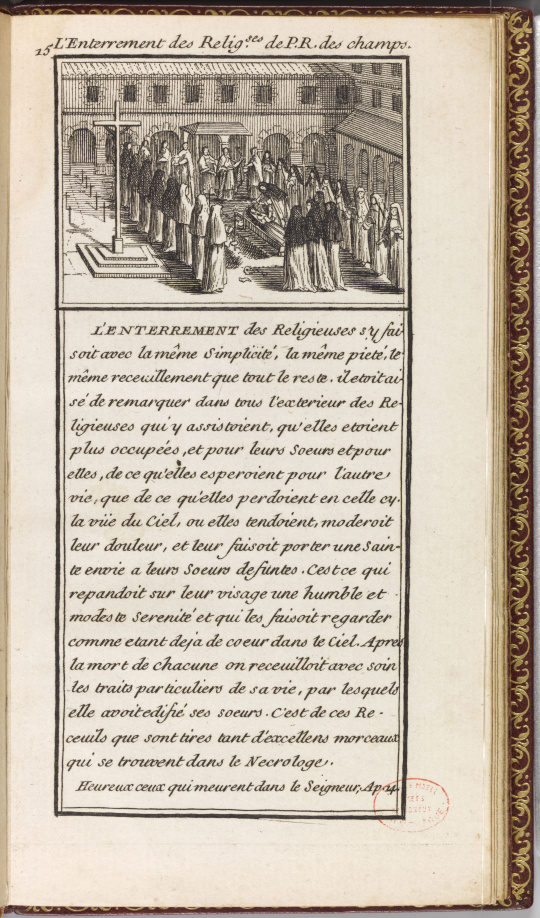 15 L'Enterrement des Relig.ses de P.R. des champs.
L'ENTERREMENT des Religieuses s'y fai
soit avec la même Simplicité, la même pieté, le
même receuillement que tout le reste. il etoit ai
sé de remarquer dans tous l'exterieur des Re-
ligieuses qui y assistoient, qu'elles etoient
plus occupées, et pour leurs Soeurs et pour
elles, de ce qu'elles esperoient pour l'autre
vie, que de ce qu'elles perdoient en celle cy.
la vüe du Ciel, ou elles tendoient, moderoit
leur douleur, et leur faisoit porter une Sain-
te envie a leurs Soeurs defuntes. C'est ce qui
repandoit sur leur visage une humble et
modeste Serenité et qui les faisoit regarder
comme etant deja de coeur dans le Ciel. Apres
la mort de chacune on receuilloit avec soin
les traits particuliers de sa vie, par lesquels
elle avoit edifié ses soeurs. C'est de ces Re-
ceuils que sont tires tant d'excellens morceaux
qui se trouvent dans le Necrologe.
Heureux ceux qui meurent dans le Seigneur, Ap. 14.